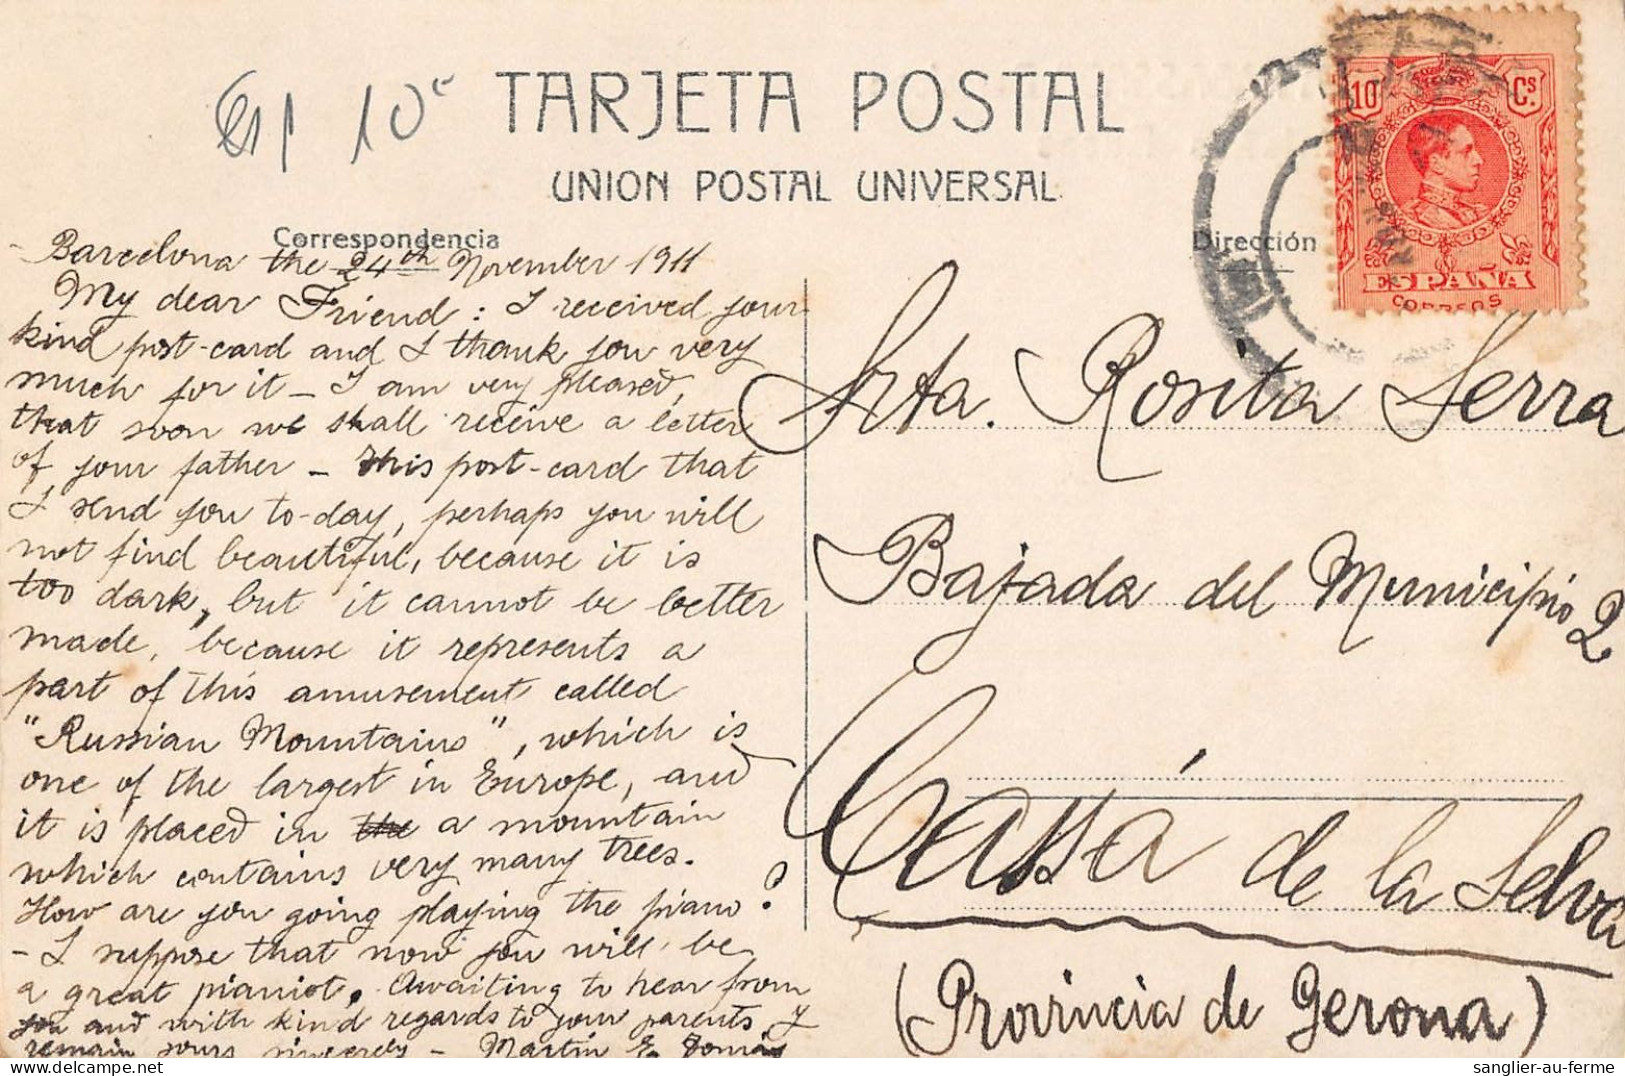 Esp 10c
TARJETA POSTAL
UNION POSTAL UNIVERSAL
Correspondencia
Barcelona the 24th November 1911
My dear Friend: I received your
kind post-card and I thank you very
much for it - I am very pleased,
that soon we shall receive a letter
of your father - This post-card that
I send you to-day, perhaps you will
not find beautiful, because it is
too dark, but it cannot be better
made, because it represents a
part of this amusement called
"Russian Mountains", which is
one of the largest in Europe, and
it is placed in the a mountain
which contains very many trees.
How are you going playing the piano?
- I suppose that now you will be
a great pianist. Awaiting to hear from
you and with kind regards to your parents, I
remain yours sincerely - Martin E. Tomás
Dirección
10 Cs.
ESPAÑA
CORREOS
Srta. Rosita Serra
Bajada del Municipio 2
Cassá de la Selva
(Provincia de Gerona)
sanglier-au-ferme